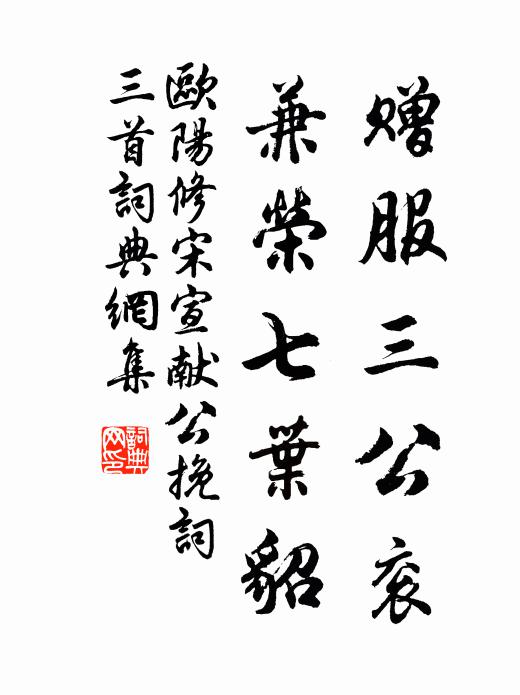 贈服三公衮
兼榮七葉貂
歐陽修宋宣献公挽詞
三首詞典網集
詞典网印